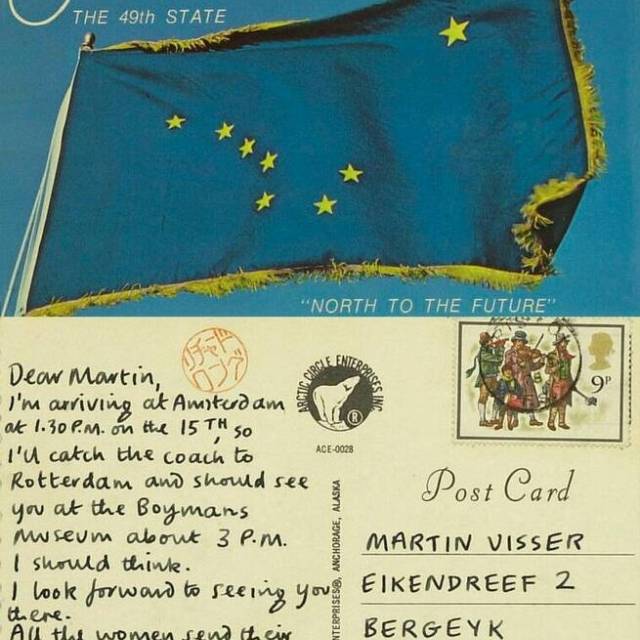 THE 49th STATE
"NORTH TO THE FUTURE"
リチャード
ロング
Dear Martin,
I'm arriving at Amsterdam
at 1.30 P.M. on the 15TH, so
I'll catch the coach to
Rotterdam and should see
you at the Boymans
Museum about 3 P.M.
I should think.
I look forward to seeing you
there.
All the women send their
ARCTIC CIRCLE ENTERPRISES INC.
®
ACE-0028
NTERPRISES®, ANCHORAGE, ALASKA
9P
Post Card
MARTIN VISSER
EIKENDREEF 2
BERGEYK